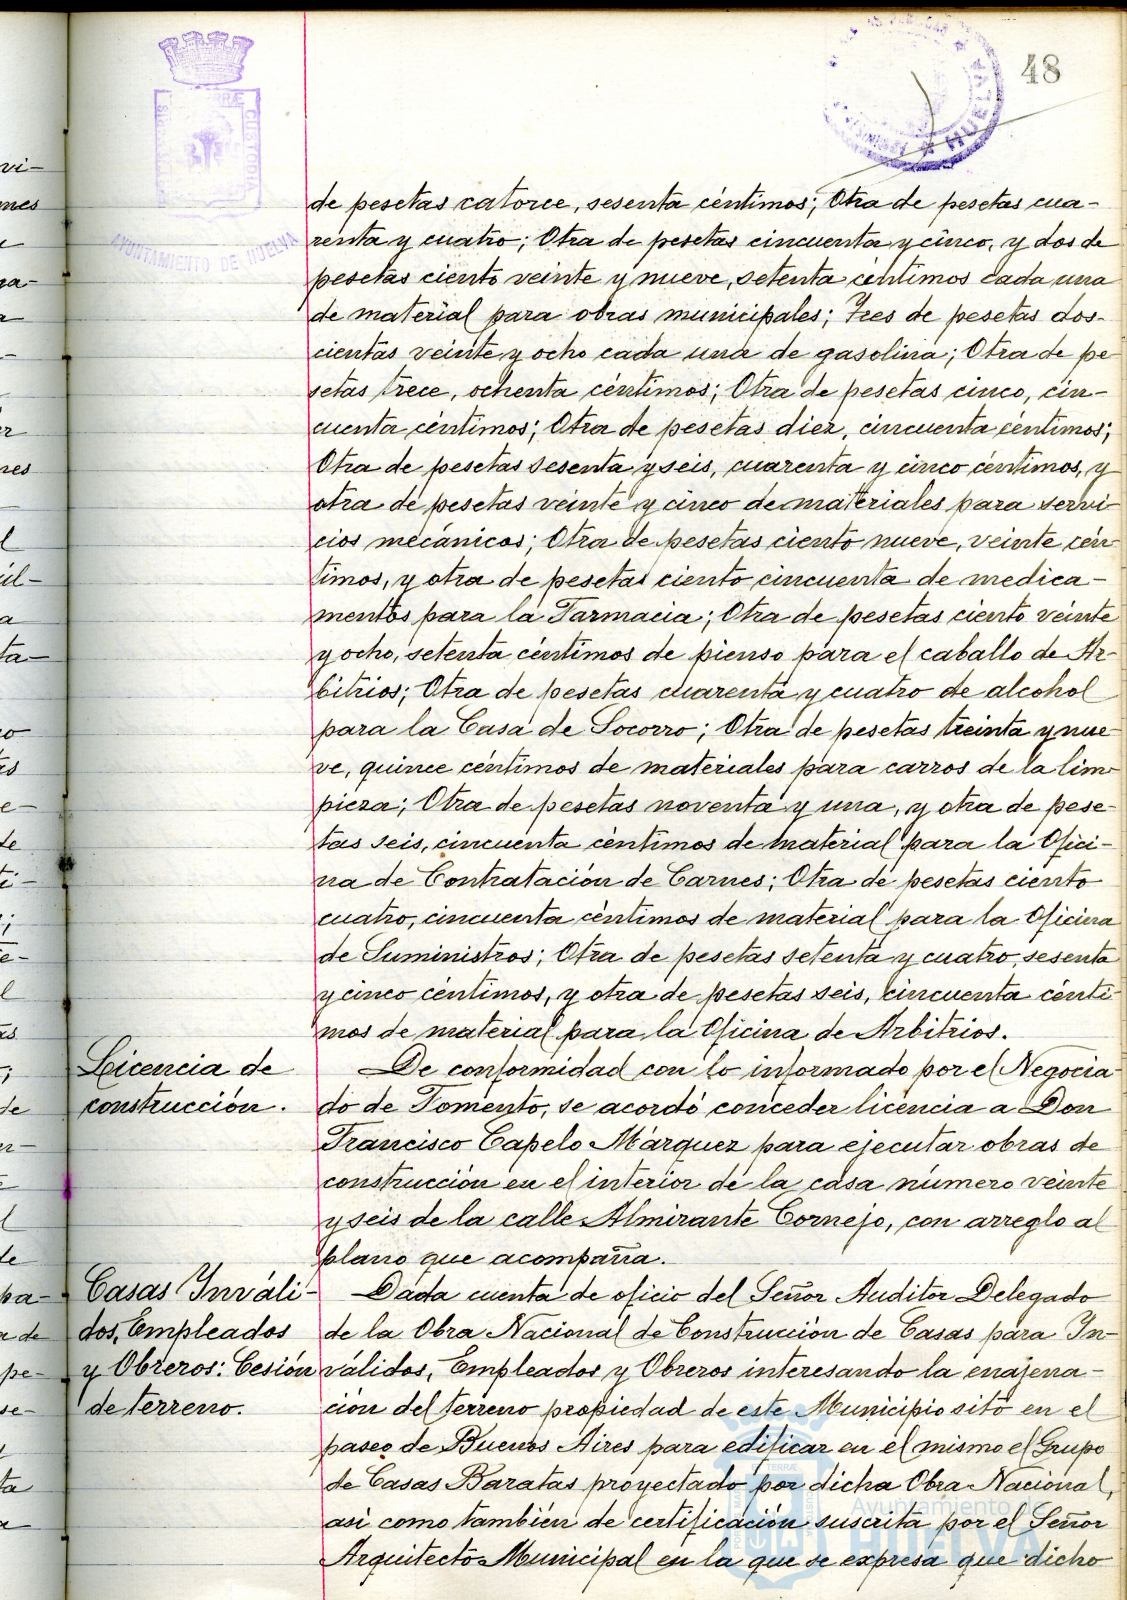 48
AYUNTAMIENTO DE HUELVA
HUELVA
de pesetas catorce, sesenta céntimos; Otra de pesetas cua-
renta y cuatro; Otra de pesetas cincuenta y cinco, y dos de
pesetas ciento veinte y nueve, setenta céntimos cada una
de material para obras municipales; Tres de pesetas dos-
cientas veinte y ocho cada una de gasolina; Otra de pe
setas trece, ochenta céntimos; Otra de pesetas cinco, cin-
cuenta céntimos; Otra de pesetas diez, cincuenta céntimos;
Otra de pesetas sesenta y seis, cuarenta y cinco céntimos, y
otra de pesetas veinte y cinco de materiales para servi-
cios mecánicos; Otra de pesetas ciento nueve, veinte cén
timos, y otra de pesetas ciento cincuenta de medica-
mentos para la Farmacia; Otra de pesetas ciento veinte
y ocho, setenta céntimos de pienso para el caballo de Ar-
bitrios; Otra de pesetas cuarenta y cuatro de alcohol
para la Casa de Socorro; Otra de pesetas treinta y nue-
ve, quince céntimos de materiales para carros de la lim-
pieza; Otra de pesetas noventa y una, y otra de pese-
tas seis, cincuenta céntimos de material para la Ofici-
na de Contratación de Carnes; Otra de pesetas ciento
cuatro, cincuenta céntimos de material para la Oficina
de Suministros; Otra de pesetas setenta y cuatro, sesenta
y cinco céntimos, y otra de pesetas seis, cincuenta cénti-
mos de material para la Oficina de Arbitrios.
Licencia de
construcción.
De conformidad con lo informado por el Negocia-
do de Fomento, se acordó conceder licencia a Don
Francisco Capelo Márquez para ejecutar obras de
construcción en el interior de la casa número veinte
y seis de la calle Almirante Cornejo, con arreglo al
plano que acompaña.
Casas Inváli-
dos, Empleados
y Obreros: Cesión
de terreno.
Dada cuenta de oficio del Señor Auditor Delegado
de la Obra Nacional de Construcción de Casas para In-
válidos, Empleados y Obreros interesando la enajena-
ción del terreno propiedad de este Municipio sito en el
paseo de Buenos Aires para edificar en el mismo el Grupo
de Casas Baratas proyectado por dicha Obra Nacional,
asi como también de certificación suscrita por el Señor
Arquitecto Municipal en la que se expresa que dicho
Ayuntamiento de
HUELVA